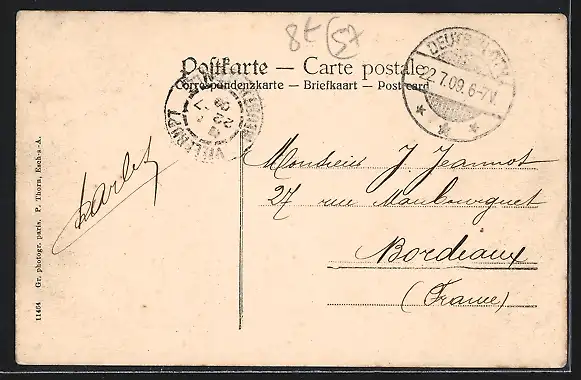 8t 57
Postkarte — Carte postale
Correspondenzkarte — Briefkaart — Post card
22.7.09. 6-7V.
VILLERUPT
22 7
09
Monsieur J. Jeannot
27 rue Maubourguet
Bordeaux
(France)
11464 Gr. photogr. paris. P. Thorn, Esch-s-A.